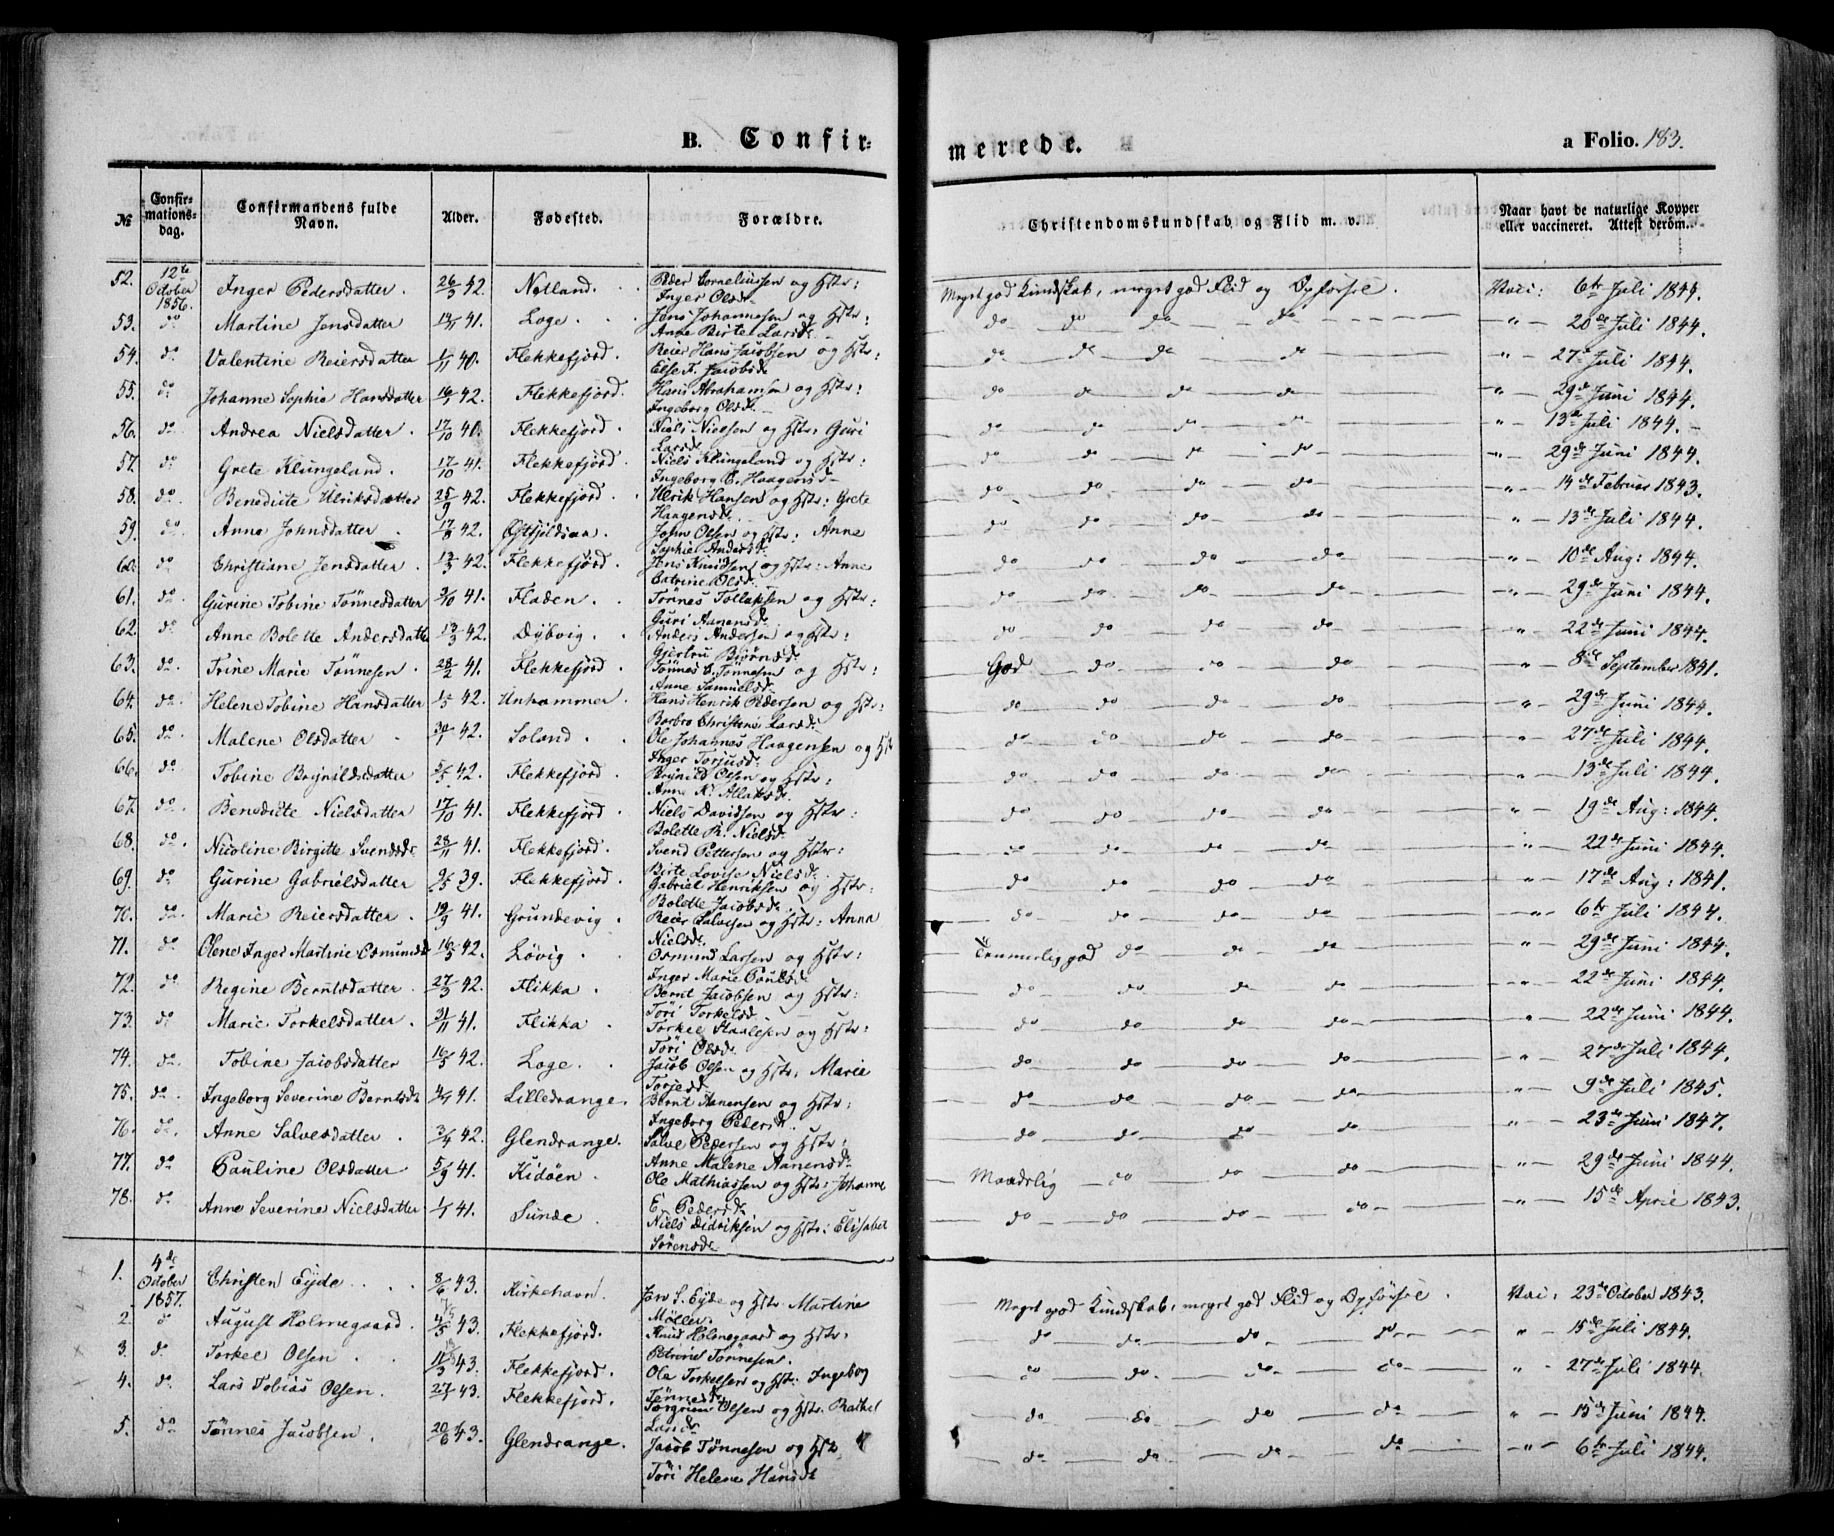 B. Confir-
merede.
a Folio. 183.
№
Confir-
mations-
dag.
Confirmandens fulde
Navn.
Alder.
Fødested.
Forældre.
Christendomskundskab og Flid m. v.
Naar havt de naturlige Kopper
eller vaccineret. Attest derom.
52. 12te October 1856. Inger Pedersdatter. 26/3 42. Nøtland. Peder Corneliussen og Hstr: Inger Olsd. Meget god Kundskab, meget god Flid og Opførsel. Vacc: 6te Juli 1844.
53. do Martine Jensdatter 13/11 41. Loge. Jens Johannesen og Hstr: Anne Birte Larsd. do do do do " 20de Juli 1844.
54. do Valentine Reiersdatter 1/11 40. Flekkefjord. Reier Hans Jacobsen og Hstr: Else F. Jacobsd. do do do do " 27de Juli 1844.
55. do Johanne Sophie Hansdatter 16/1 42. Flekkefjord. Hans Abrahamsen og Hstr: Ingeborg Olsd. do do do do " 29de Juni 1844.
56. do Andrea Nielsdatter. 17/10 40. Flekkefjord. Niels Nielsen og Hstr: Guri Larsd. do do do do " 13de Juli 1844.
57. do Grete Klungeland. 17/10 41. Flekkefjord. Niels Klungeland og Hstr: Ingeborg E. Haagensd. do do do do " 29de Juni 1844.
58. do Benedicte Ulriksdatter 25/9 42. Flekkefjord. Ulrik Hansen og Hstr: Grete Haagensd. do do do do " 14de Februar 1843.
59. do Anne Johnsdatter. 17/8 42. Østfjeldsaa John Olsen og Hstr: Anne Sophie Andersd. do do do do " 13de Juli 1844.
60. do Christiane Jensdatter. 13/3 42. Flekkefjord. Jens Knudsen og Hstr: Anne Catrine Olsd. do do do do " 10de Aug: 1844.
61. do Gurine Tobine Tønnesdatter 2/10 41. Fladen. Tønnes Tollaksen og Hstr: Guri Aanensd. do do do do " 29de Juni 1844.
62. do Anne Bolette Andersdatter 13/3 42. Dybvig. Anders Andersen og Hstr: Gjertru Bjørnsd. do do do do " 22de Juni 1844.
63. do Trine Marie Tønnesen 28/2 41. Flekkefjord. Tønnes E. Tønnesen og Hstr: Anne Samuelsd. God do do do " 8de September 1841.
64. do Helene Tobine Hansdatter 1/5 42. Unhammer. Hans Henrik Pedersen og Hstr: Barbro Christense Larsd. do do do do " 29de Juni 1844.
65. do Malene Olsdatter 30/1 42. Soland. Ole Johannes Haagensen og Hstr Inger Torjusd. do do do do " 27de Juli 1844.
66. do Tobine Brynildsdatter 5/5 42. Flekkefjord. Brynild Olsen og Hstr: Anne K. Atlaksd. do do do do " 13de Juli 1844.
67. do Benedicte Nielsdatter 17/10 41. Flekkefjord. Niels Davidsen og Hstr: Bolette R. Nielsd. do do do do " 19de Aug: 1844.
68. do Nicoline Birgitte Svendsd. 28/11 41. Flekkefjord. Svend Pettersen og Hstr: Birte Lovise Nielsd. do do do do " 22de Juni 1844.
69. do Gurine Gabrielsdatter 9/5 39. Flekkefjord. Gabriel Henriksen og Hstr: Bolette Jacobsd. do do do do " 17de Aug: 1841.
70. do Marie Reiersdatter 19/9 41. Grundevig. Reier Salvesen og Hstr: Anna Nielsd. do do do do " 6te Juli 1844.
71. do Olene Inger Martine Osmundsd 16/5 42. Løvig. Osmund Larsen og Hstr: Inger Marie Paulsd. Temmelig god do do do " 29de Juni 1844.
72. do Regine Berntsdatter. 27/3 42. Flikka. Bernt Jacobsen og Hstr: Tøri Torkelsd. do do do do " 22de Juni 1844.
73. do Marie Torkelsdatter. 31/11 41. Flikka. Torkel Staalesen og Hstr: Tøri Olsd. do do do do " 22de Juni 1844.
74. do Tobine Jacobsdatter 16/5 42. Loge. Jacob Olsen og Hstr: Marie Torjesd. do do do do " 27de Juli 1844.
75. do Ingeborg Severine Berntsd. 4/9 41. Lilledrange. Bernt Aanensen og Hstr: Ingeborg Pedersd. do do do do " 9de Juli 1845.
76. do Anne Salvesdatter. 3/4 42. Glendrange. Salve Pedersen og Hstr: Anne Malene Aanensd. do do do do " 23de Juni 1847.
77. do Pauline Olsdatter 5/9 41. Hidøen. Ole Mathiassen og Hstr: Johanne E. Pedersd. Maadelig do do do " 29de Juni 1844.
78. do Anne Severine Nielsdatter 1/1 41. Sunde. Niels Didriksen og Hstr: Elisabet Sørensd. do do do do " 15de April 1843.
1. 4de October 1857. Christen Eyde 8/6 43. Kirkehavn. Jens S. Eyde og Hstr. Martine Møller. Meget god Kundskab, meget god Flid og Opførsel. Vacc: 23de October 1843.
2. do August Holmegaard. 4/5 43. Flekkefjord. Knud Holmegaard og Hstr: Petrine Tønnesen. do do do do " 15de Juli 1844.
3. do Torkel Olsen. 11/3 43. Flekkefjord. Ole Torkelsen og Hstr: Ingeborg Tønnesd. do do do do " 27de Juli 1844.
4. do Lars Tobias Olsen. 27/1 43. Flekkefjord. Torgrim Olsen og Hstr. Rachel Larsd. do do do do " 15de Juni 1844.
5. do Tønnes Jacobsen. 20/6 43. Glendrange. Jacob Tønnesen og Hstr Tøri Helene Hansd. do do do do " 6te Juli 1844.